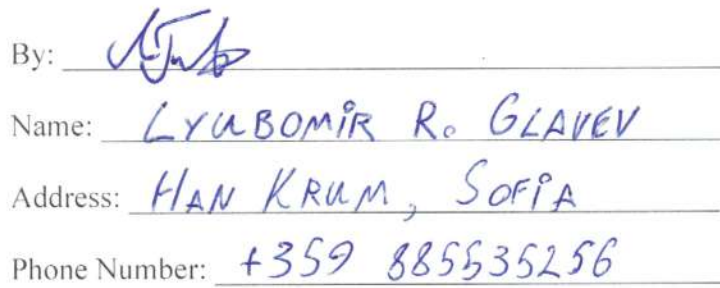 By:
Name: LYUBOMIR R. GLAVEV
Address: HAN KRUM, SOFIA
Phone Number: +359 885535256